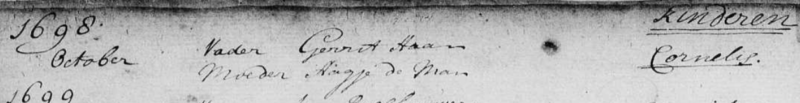 1698. kinderen
October Vader Gerrit Haan Cornelis.
Moeder de Man
1699